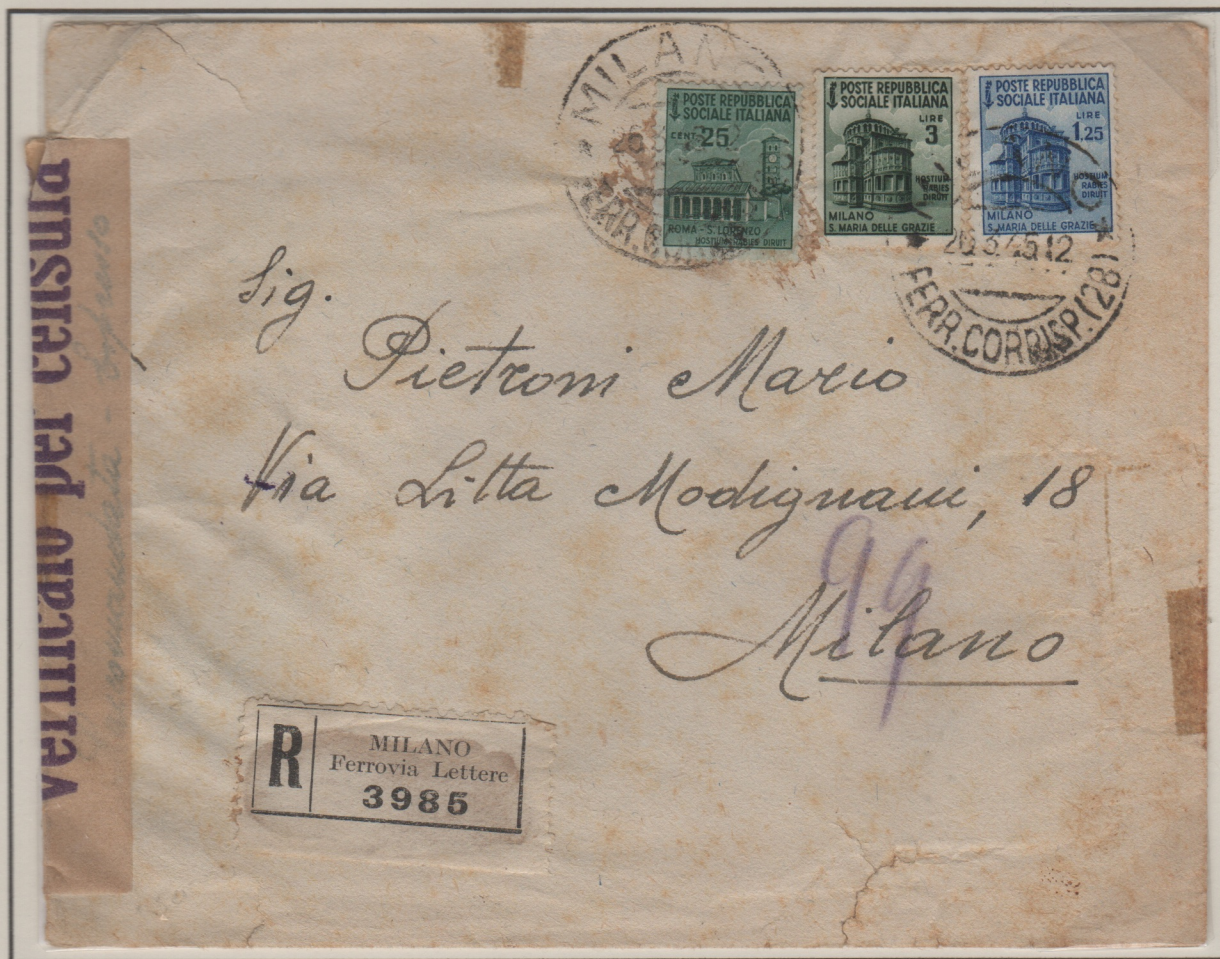 MILANO
FERR. CORR
POSTE REPUBBLICA
SOCIALE ITALIANA
CENT 25
ROMA - S. LORENZO
HOSTIUM RABIES DIRUIT
POSTE REPUBBLICA
SOCIALE ITALIANA
LIRE
3
HOSTIUM
RABIES
DIRUIT
MILANO
S. MARIA DELLE GRAZIE
POSTE REPUBBLICA
SOCIALE ITALIANA
LIRE
1,25
HOSTIUM
RABIES
DIRUIT
MILANO
S. MARIA DELLE GRAZIE
20.3.45.12
FERR. CORRISP. (28)
Verificato per censura
Sig.
Pietroni Mario
Via Litta Modignani, 18
Milano
R
MILANO
Ferrovia Lettere
3985